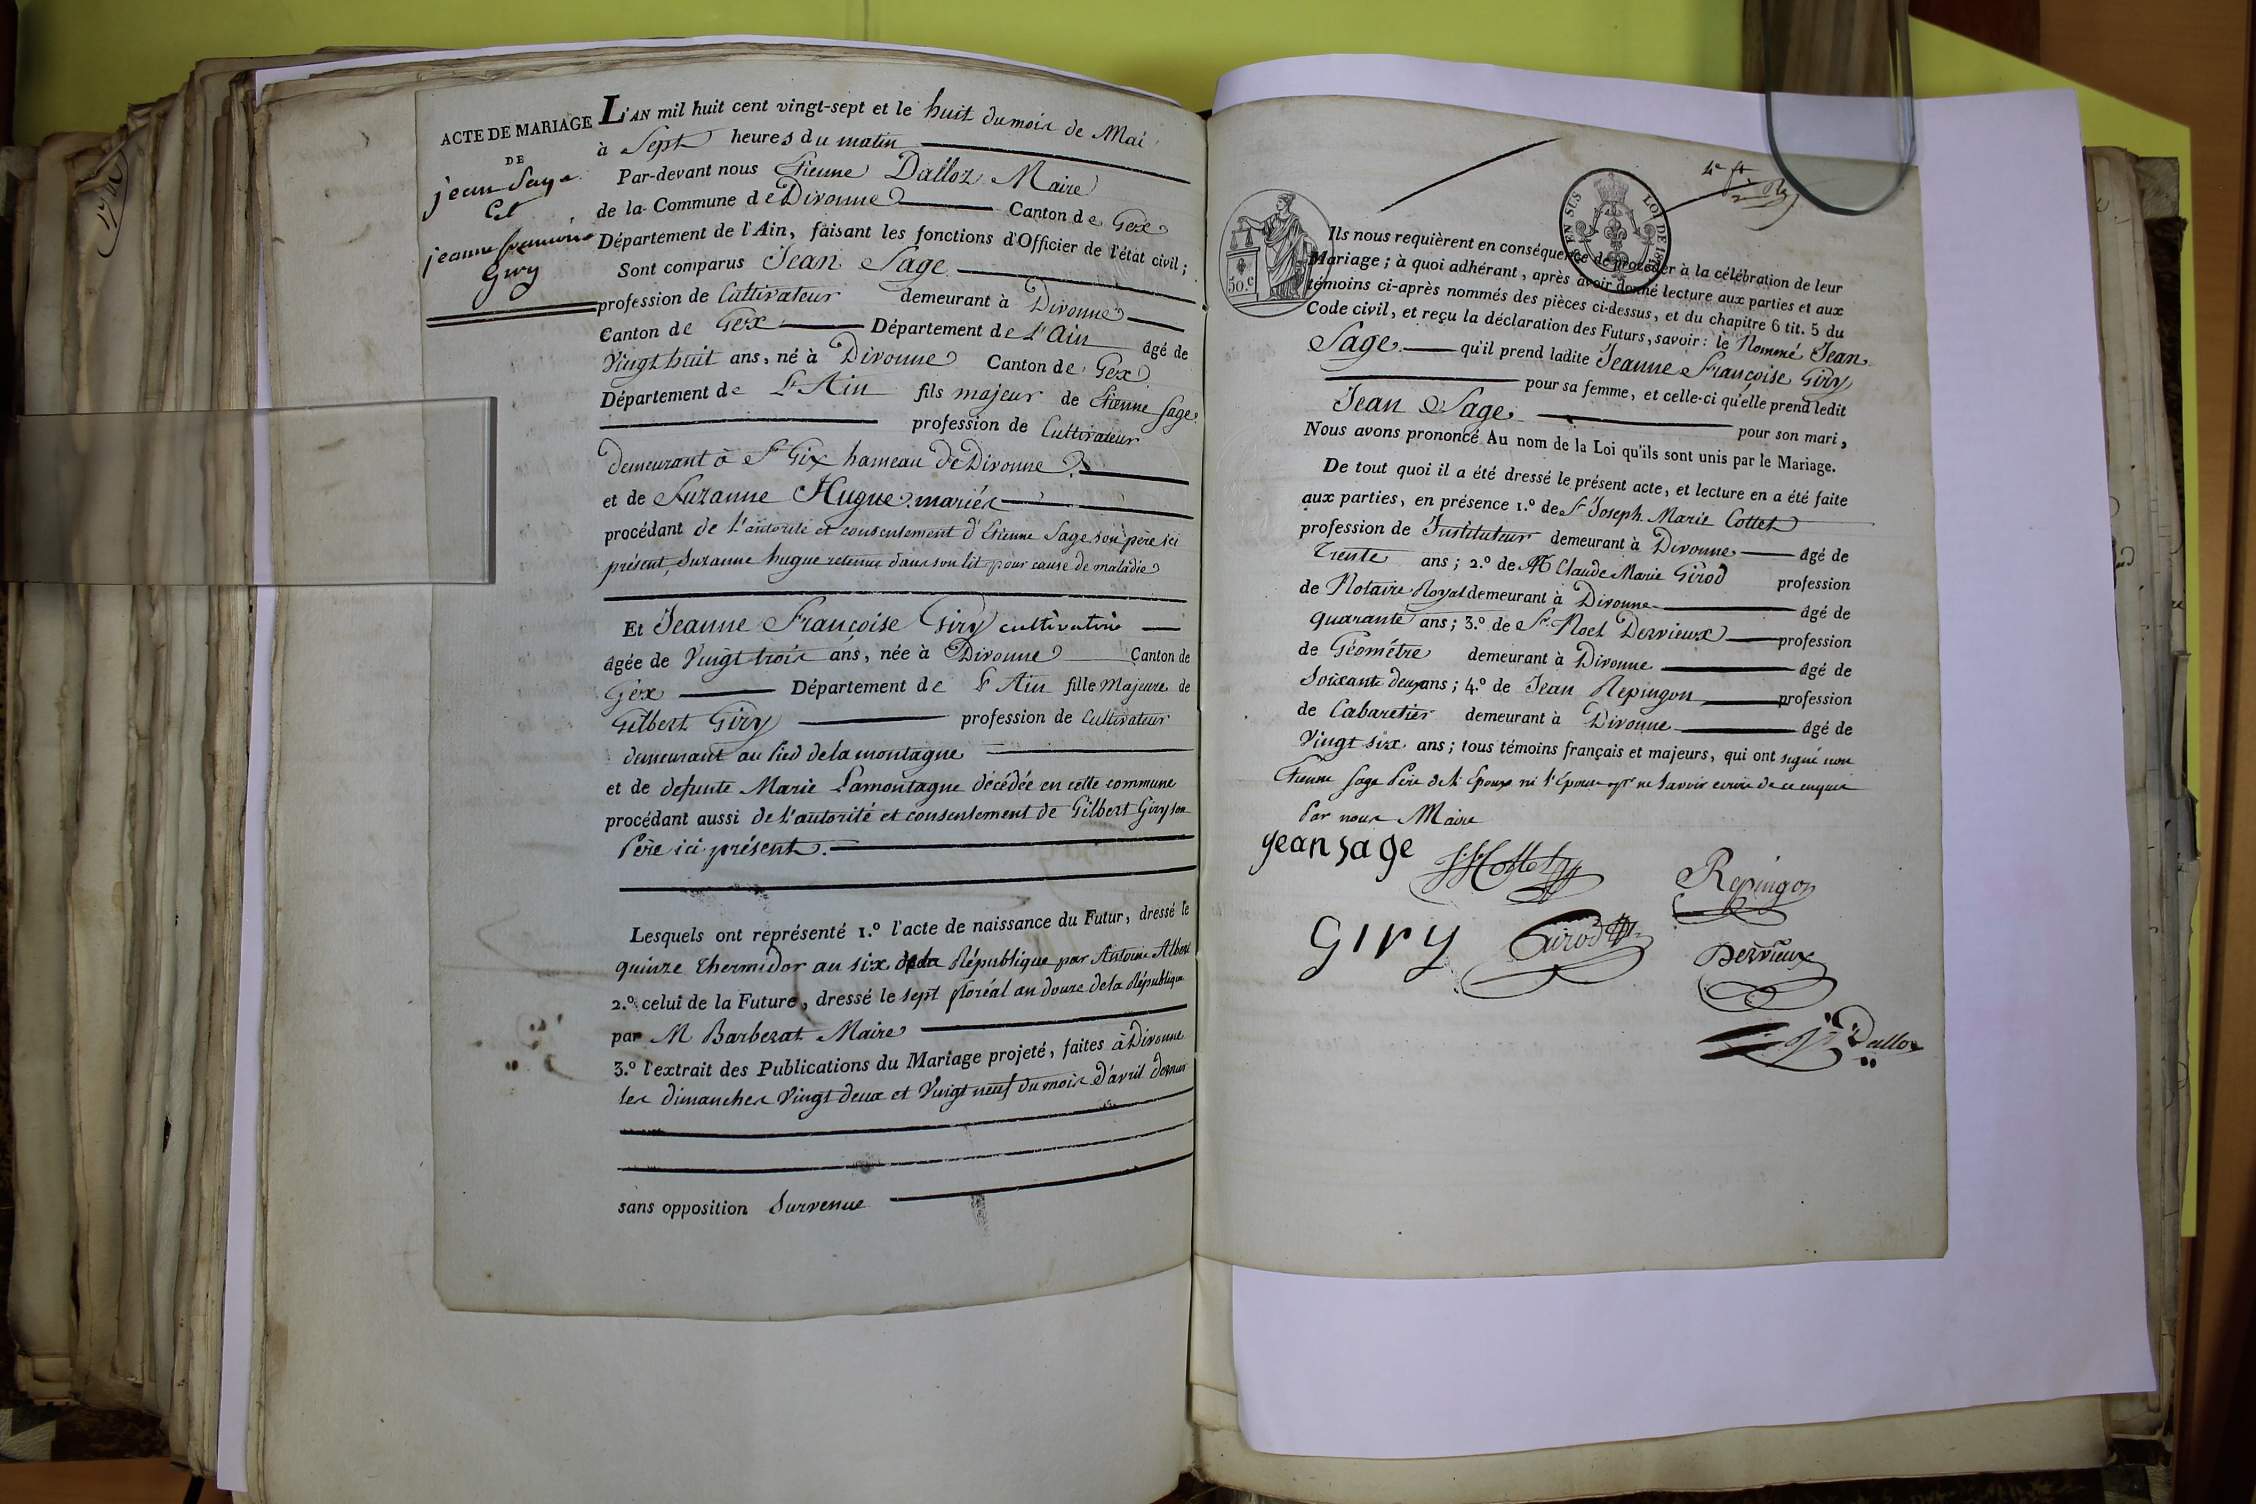 ACTE DE MARIAGE
DE
jean Sage
Et
jeanne francoise
Giry
L'AN mil huit cent vingt-sept et le huit du mois de Mai
à Sept heures du matin
Par-devant nous Etienne Dalloz Maire
de la Commune de Divonne Canton de Gex
Département de l'Ain, faisant les fonctions d'Officier de l'état civil;
Sont comparus Jean Sage
profession de Cultivateur demeurant à Divonne
Canton de Gex Département de L'Ain âgé de
Vingt huit ans, né à Divonne Canton de Gex
Département de L'Ain fils majeur de Etienne Sage
profession de Cultivateur
demeurant à St Gix hameau de Divonne
et de Suzanne Hugue mariés
procédant de L'autorité et consentement d'Etienne Sage son père ici
présent, Suzanne hugue retenue dans son lit pour cause de maladie
Et Jeanne Françoise Giry cultivatrice
âgée de Vingt trois ans, née à Divonne Canton de
Gex Département de L'Ain fille Majeure de
Gilbert Giry profession de Cultivateur
demeurant au Pied de la montagne
et de defunte Marie Lamontagne décédée en cette commune
procédant aussi de L'autorité et consentement de Gilbert Giry son
Père ici présent.
Lesquels ont représenté 1.º l'acte de naissance du Futur, dressé le
quinze thermidor an six de la République par Antoine Albert
2.º celui de la Future, dressé le sept floréal an douze de la République
par M Barberat Maire
3.º l'extrait des Publications du Mariage projeté, faites à Divonne
les dimanches Vingt deux et Vingt neuf du mois d'avril dernier
sans opposition Survenue
50.c
EN SUS
LOI DE
Ils nous requièrent en conséquence de procéder à la célébration de leur
Mariage; à quoi adhérant, après avoir donné lecture aux parties et aux
témoins ci-après nommés des pièces ci-dessus, et du chapitre 6 tit. 5 du
Code civil, et reçu la déclaration des Futurs, savoir: le Nommé Jean
Sage qu'il prend ladite Jeanne Françoise Giry
pour sa femme, et celle-ci qu'elle prend ledit
Jean Sage pour son mari,
Nous avons prononcé Au nom de la Loi qu'ils sont unis par le Mariage.
De tout quoi il a été dressé le présent acte, et lecture en a été faite
aux parties, en présence 1.º de Sr Joseph Marie Cottet
profession de Instituteur demeurant à Divonne âgé de
Trente ans; 2.º de Me Claude Marie Girod profession
de Notaire Royal demeurant à Divonne âgé de
quarante ans; 3.º de Sr Noel Dervieux profession
de Géométre demeurant à Divonne âgé de
Soixante deux ans; 4.º de Jean Repingon profession
de Cabaretier demeurant à Divonne âgé de
Vingt six ans; tous témoins français et majeurs, qui ont signé non
Etienne Sage Père de l'Epoux ni l'Epouse ne Savoir ecrire de ce enquis
Par nous Maire
jean sage
Cottet
Repingon
Giry
Girod
Dervieux
Dalloz